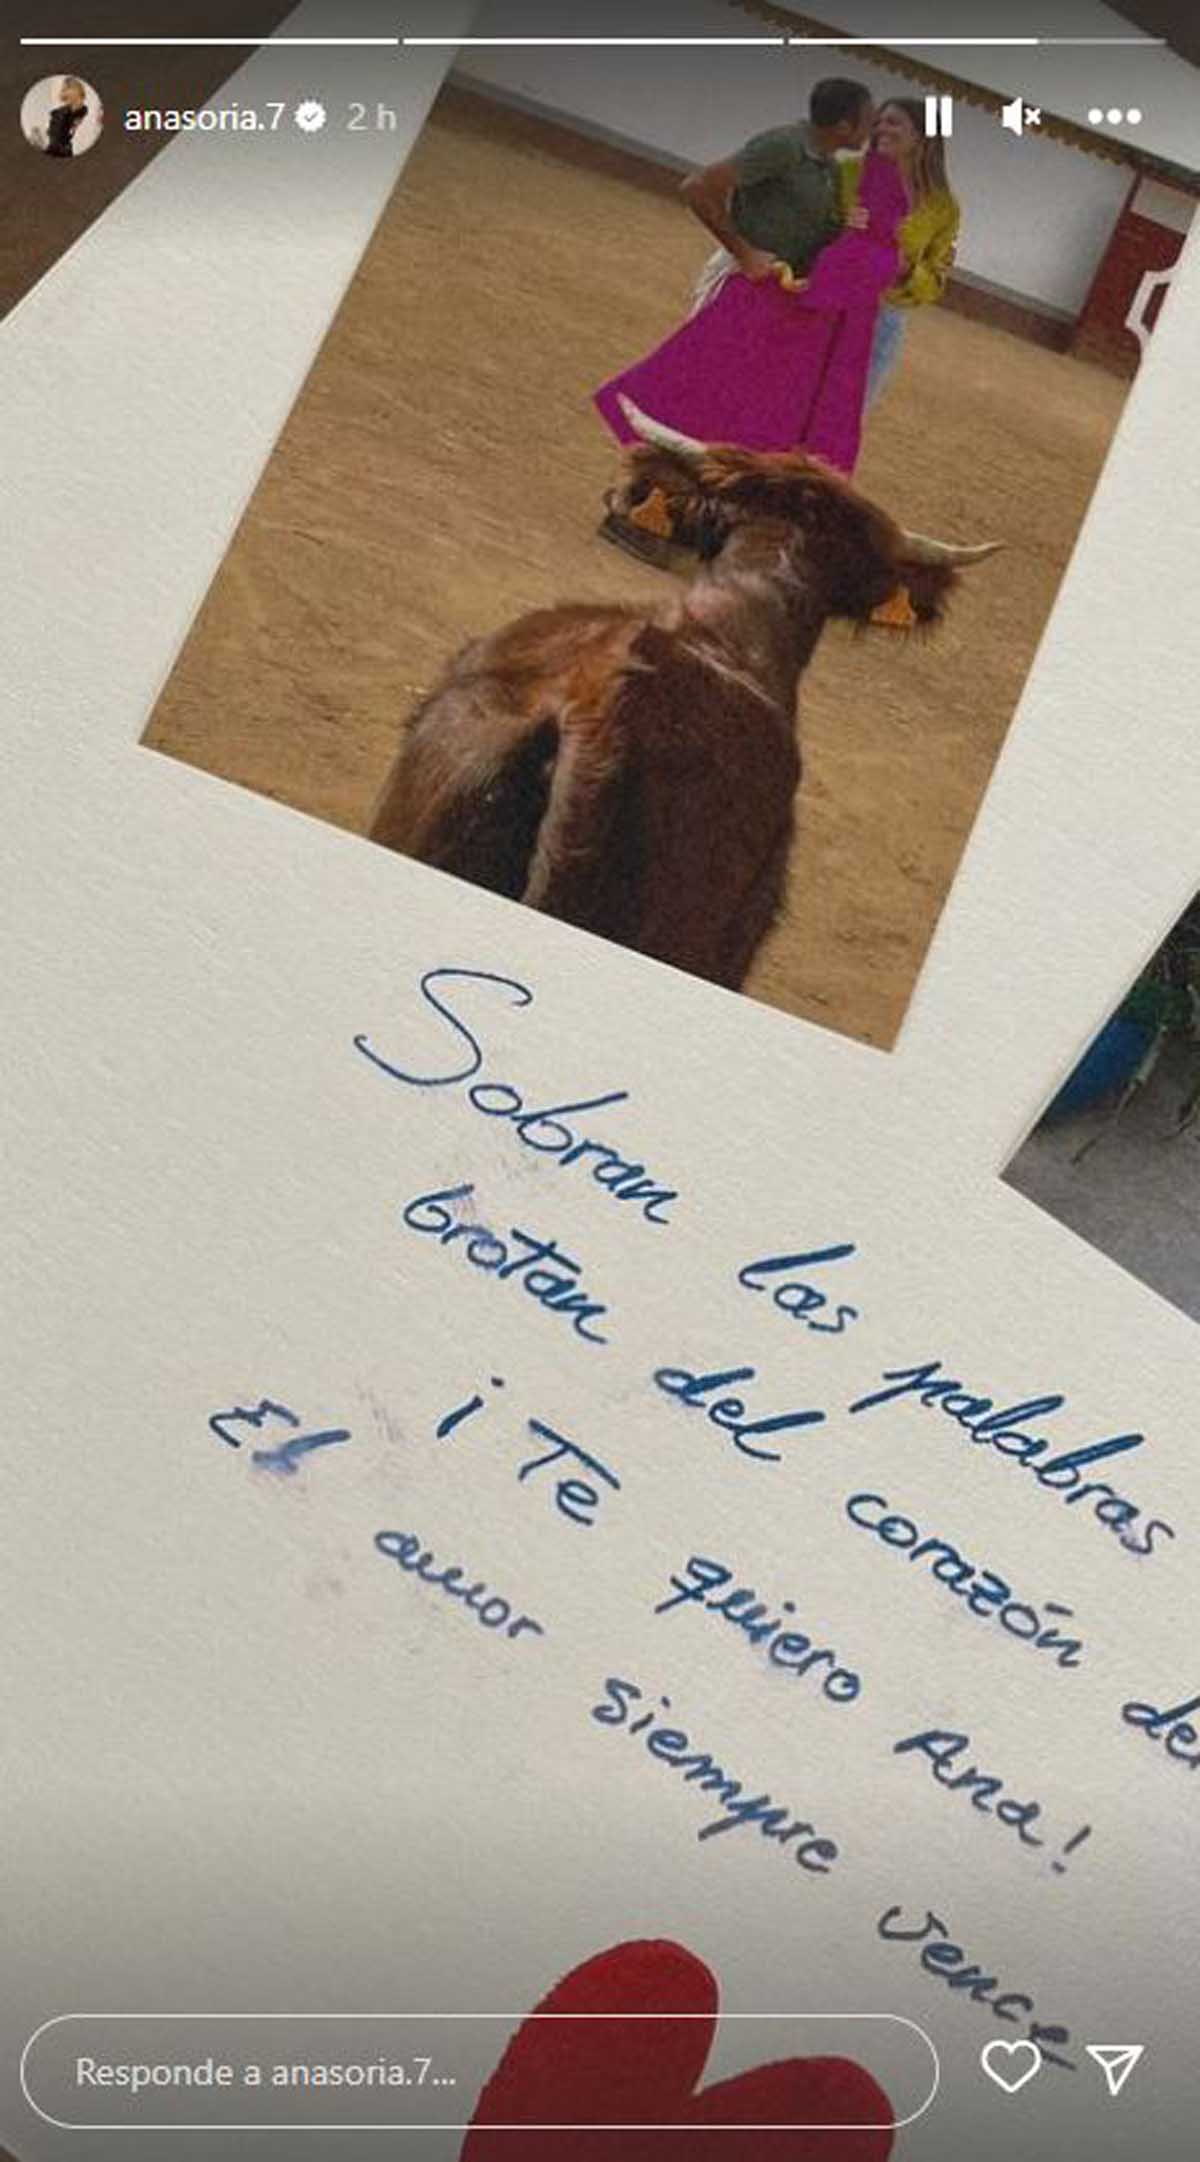 anasoria.7 2 h
Sobran las palabras
brotan del corazón
¡Te quiero Ana!
El amor siempre vence
Responde a anasoria.7...